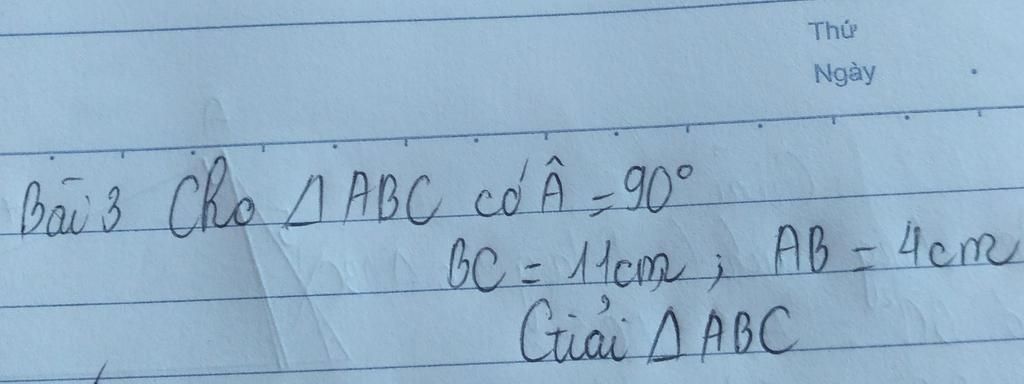 Thứ
Ngày
Bài 3 Cho Δ ABC có Â = 90°
BC = 11cm ; AB = 4cm
Giải Δ ABC